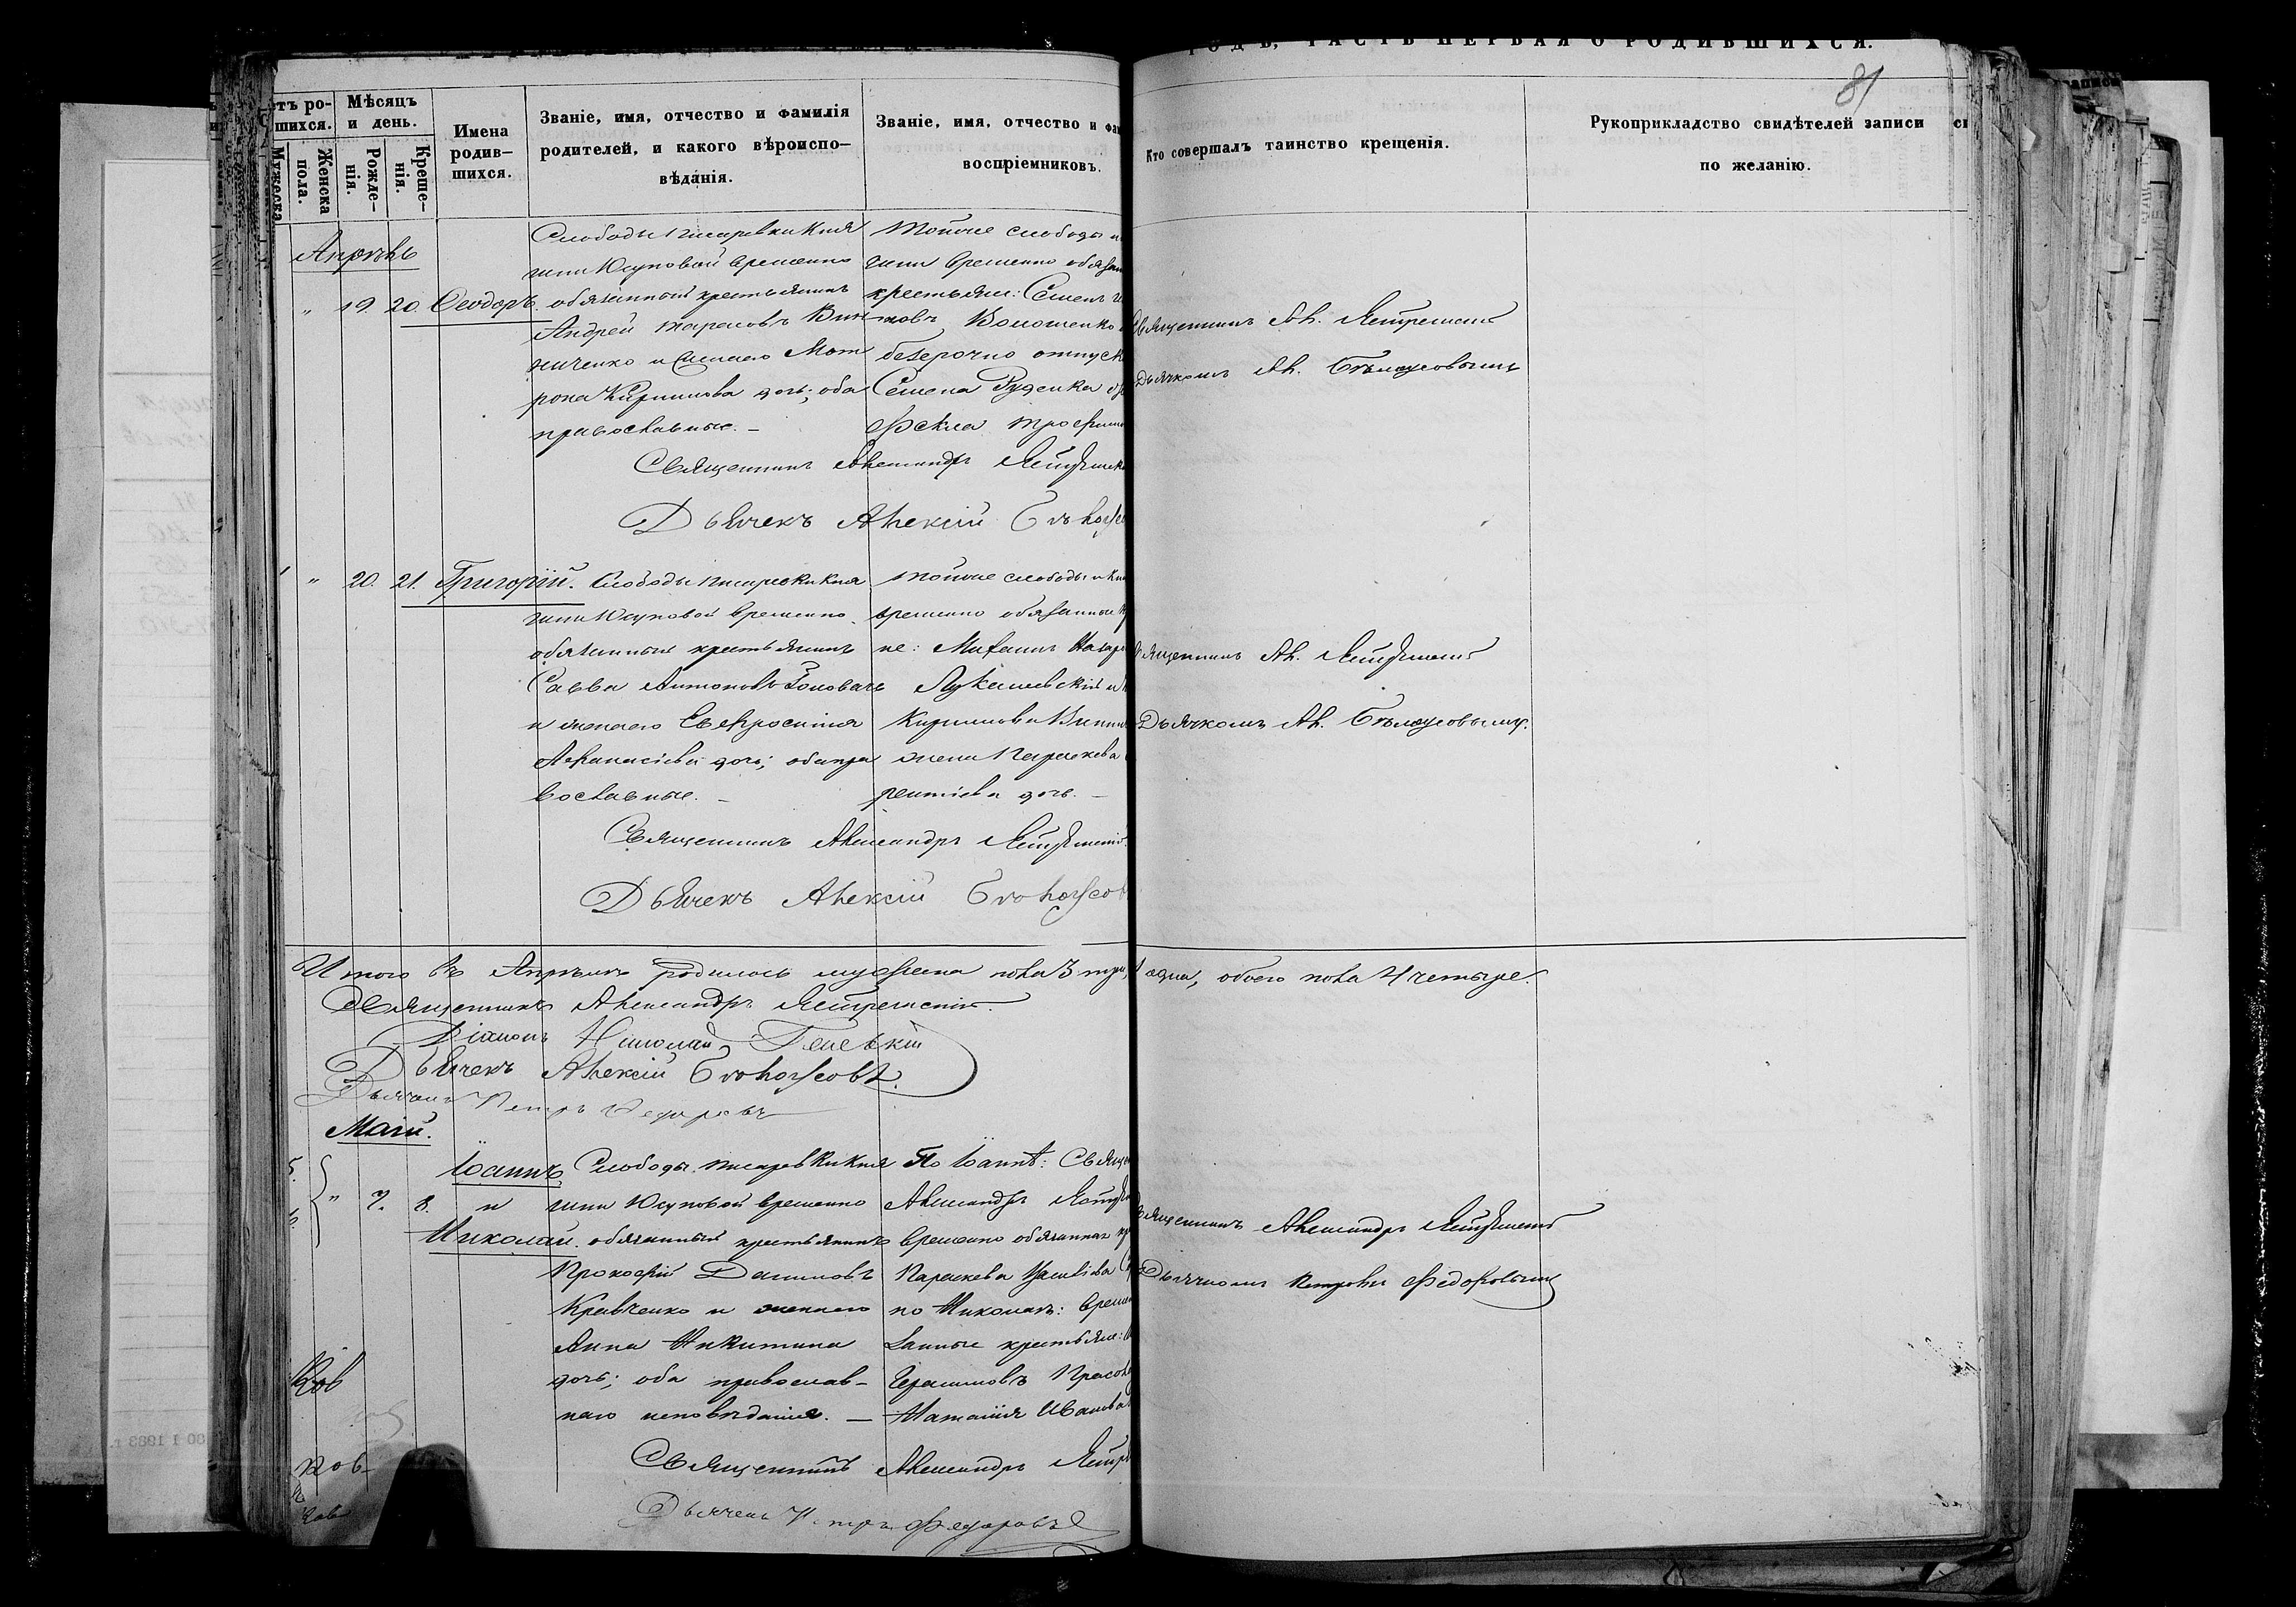 РОДЪ, ЧАСТЬ ПЕРВАЯ О РОДИВШИХСЯ.
81
Мѣсяцъ и день.
Мужеска
Женска пола.
Рожденія.
Крещенія.
Имена родив-
шихся.
Званіе, имя, отчество и фамилія
родителей, и какого вѣроиспо-
вѣданія.
Званіе, имя, отчество и фам
воспріемниковъ.
Кто совершалъ таинство крещенія.
Рукоприкладство свидѣтелей записи
по желанію.
Апрѣль
" 19. 20. Ѳеодоръ.
Слободы Писаревки Кня
гини Юсуповой временно
обязанный крестьянинъ
Андрей Тарасовъ Вин
ниченко и жена его Мат
рона Кириллова дочь; оба
православные. –
Тойже слободы и
гини временно обязан
крестьяне: Семенъ
Волошенко
безсрочно отпуск
Семена Руденка
Ѳекла Трофим
Священникъ Ал. Ястремскій
Дьячкомъ Ал. Бѣлоусовымъ
Священникъ Александръ Ястремск
Дьячекъ Алексій Бѣлоусо
" 20. 21. Григорій.
Слободы Писаревки Кня
гини Юсуповой временно
обязанный крестьянинъ
Савва Антоновъ Головачъ
и жена его Евфросинія
Аѳанасіева дочь; оба пра
вославные. –
Тойже слободы и Кн
временно обязанные
не: Михаилъ Назар
Лукашевскій и
Кириллова Винни
жена Параскева
рентіева дочь. –
Священникъ Ал. Ястремскій
Дьячкомъ Ал. Бѣлоусовымъ.
Священникъ Александръ Ястремскій.
Дьячекъ Алексій Бѣлоусов
Итого въ Апрѣлѣ родилось мужеска пола 3 три, 1 одна, обоего пола 4 четыре.
Священникъ Александръ Ястремскій.
Діаконъ Николай
Дьячекъ Алексій Бѣлоусовъ.
Дьячекъ Петръ Федоровъ
Маій.
" 7. 8. Іоаннъ
и
Николай.
Слободы Писаревки Кня
гини Юсуповой временно
обязанный крестьянинъ
Прокофій Даниловъ
Кравченко и жена его
Анна Никитина
дочь; оба православ–
наго исповѣданія. –
По Іоаннѣ: Свящ
Александръ Ястр
временно обязанная
Параскева
по Николаѣ: време
занные крестьяне:
Герасимовъ Красов
Наталія Иванова
Священникъ Александръ Ястремскій
Дьячкомъ Петромъ Федоровымъ
Священникъ Александръ Ястр
Дьячекъ Петръ Федоровъ